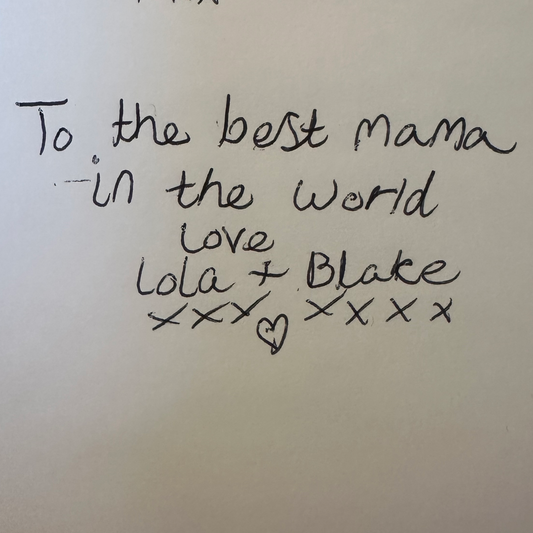 To the best mama
in the world
Love
Lola + Blake
xxx xxxx